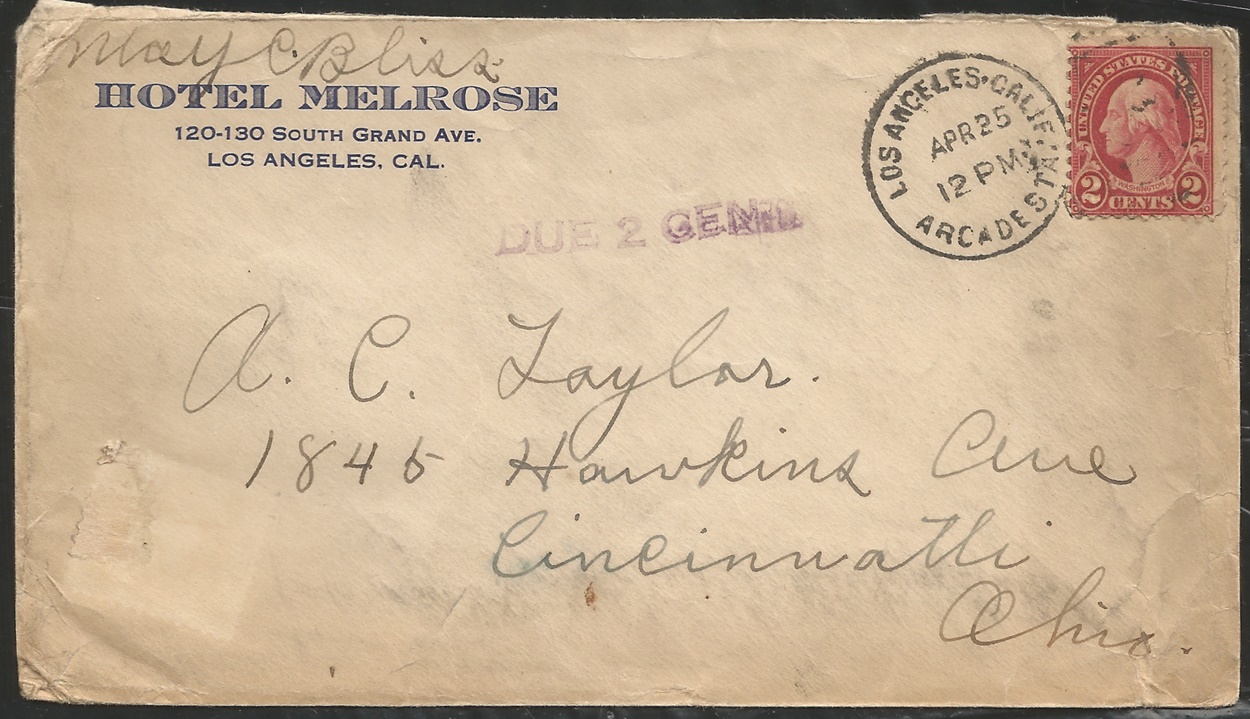 May C. Bliss
HOTEL MELROSE
120-130 SOUTH GRAND AVE.
LOS ANGELES, CAL.
LOS ANGELES, CALIF.
APR 25
12 PM
ARCADE STA.
UNITED STATES POSTAGE
WASHINGTON
2 CENTS 2
DUE 2 CENTS
A. C. Taylor.
1845 Hawkins Ave
Cincinnatti
Ohio.